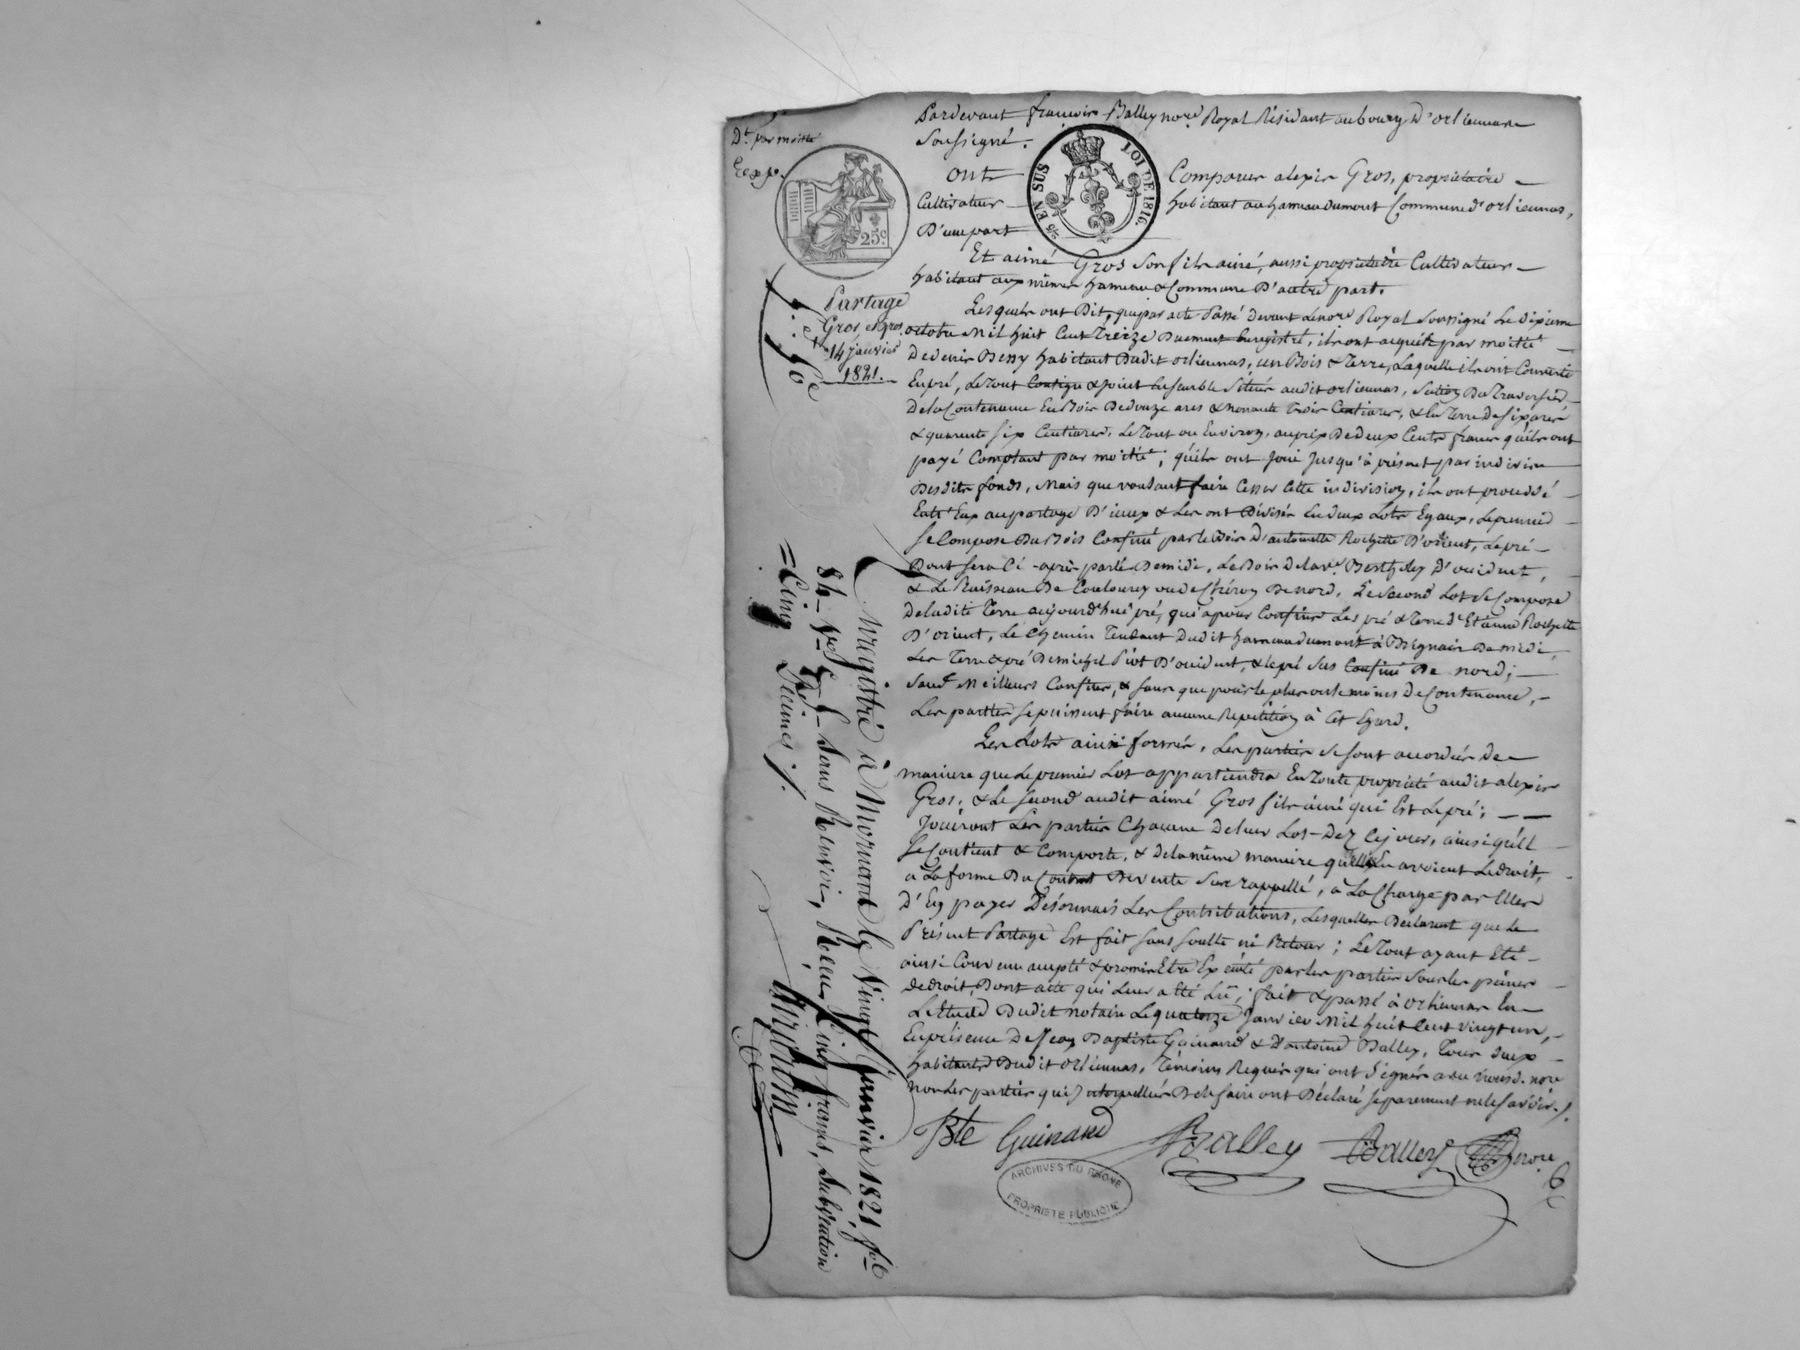 Pardevant françois Balley no.re Royal Résidant au bourg d'orliennas
Soussigné.
ont Comparus alexis Gros, propriétaire
Cultivateur habitant au hameau dumont Commune d'orliennas,
D'une part
Et aimé Gros Son fils ainé, aussi propriétaire Cultivateur
habitant aux mêmes hameau & Commune D'autre part.
Lesquels ont Dit, que par acte Passé Devant Le no.re Royal Soussigné Le dixieme
octobre Mil huit Cent Treize Duement Enregistré, ils ont acquis par moitié
De denis Bessy habitant Dudit orliennas, un Bois & Terre, Laquelle ils ont Convertie
En pré, Le Tout Contigu & joint Ensemble Situés audit orliennas, Du Traversier
De la Contenance En Bois De douze ares & nonante Trois Centiares, & En Terre de six ares
& quarente six Centiares, Le Tout ou Environ, au prix De deux Cents francs qu'ils ont
payé Comptant par moitié; qu'ils ont Joui Jusqu'à présent par indivis
Desdits fonds, Mais que voulant faire Cesser Cette indivision, ils ont procédé
Entr'Eux au partage D'iceux & Les ont Divisés En deux Lots Egaux, Le premier
Se Compose Du Bois Confiné par le Bois d'antoinette Rochette D'orient, Le pré
Dont Sera Ci-après parlé De midi, Le Bois De la v.e Bertheley D'occident,
& Le Ruisseau De ou de Chéron De nord. Le Second Lot Se Compose
De la dite Terre aujourd'hui pré, qui a pour Confins Les pré & Terre d'Etienne Rochette
D'orient, Le Chemin Tendant Dudit hameau dumont à Brignais De midi,
Les Terre & pré De michel Piot D'occident, & le pré Sus Confiné De nord;
Sauf Meilleurs Confins, & Sans que pour le plus ou le moins De Contenance,
Les parties Se puissent faire aucune Répétition à Cet Egard.
Les Lots ainsi formés, Les parties Se Sont accordées De
maniere que Le premier Lot appartiendra En Toute propriété audit alexis
Gros; & Le Second audit aimé Gros fils ainé qui Est Le pré;
Jouiront Les parties Chacune De leur Lot Dez Ce jour, ainsi qu'il
Se Contient & Comporte, & De la même maniere qu'Elles En avoient Le droit,
a La forme Du Contrat De vente Sus rappellé, à La Charge par Elles
D'En payer Désormais Les Contributions, Lesquelles Déclarent que Le
Présent Partage Est fait Sans Soulte ni Retour; Le Tout ayant Eté
ainsi Convenu accepté & promis Etre Exécuté par les parties Sous les peines
de droit, Dont acte qui Leur a Eté Lû; fait & passé à orliennas En
L'Etude Dudit notaire Le quatorze Janvier Mil huit Cent vingt un,
En présence De Jean Baptiste Guinand & D'antoine Balley, Tous Deux
habitants Dudit orliennas, Témoins Requis qui ont Signés avec nousd. no.re
non Les parties qui Dele faire ont Déclaré Séparement ne le Savoir./.
Bte Guinand Balley Balley no.re
ARCHIVES DU RHÔNE
PROPRIETE PUBLIQUE
25 EN SUS LOI DE 1816.
25.c
D.t par moitié
Exp.
Partage
Gros & Gros
14 janvier
1821.
Enregistré à Mornant le Vingt Janvier 1821 f.o
84 Sans Renvoi, Reçu Cinq francs, Subvention
Cinq Décimes /.